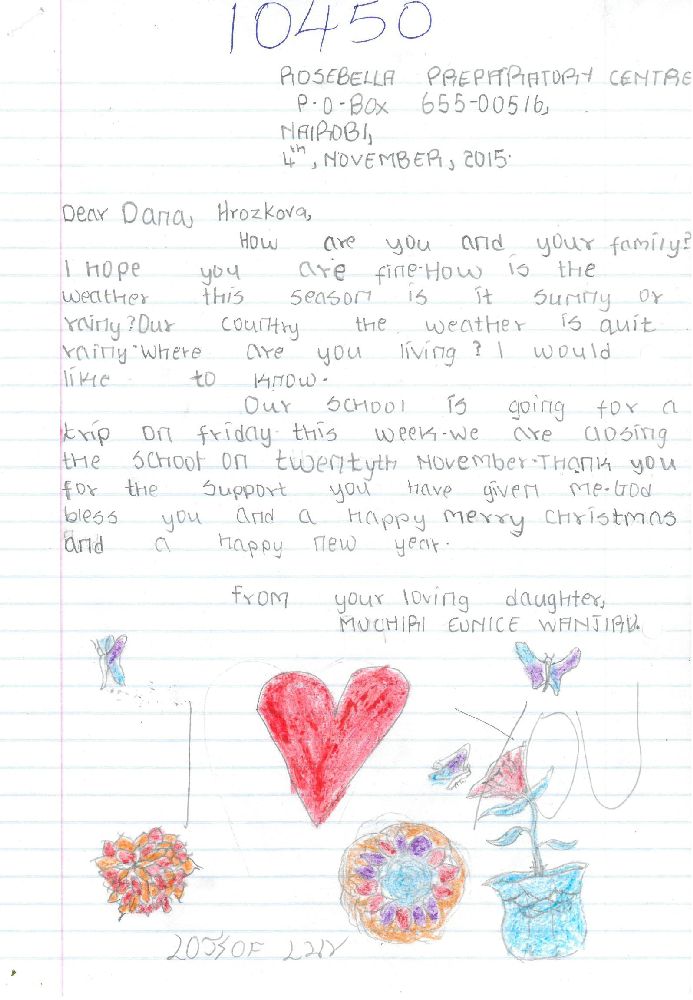 10450
ROSEBELLA PREPATRATORY CENTRE
P.O.BOX 655-00516,
NAIROBI,
4th, NOVEMBER, 2015.
Dear Dana, Hrozkova,
How are you and your family?
I hope you are fine.How is the
weather this season is it sunny or
rainy?Our country the weather is quit
rainy.Where are you living? I would
like to know.
Our school is going for a
trip on friday this week.We are closing
the school on twentyth November.Thank you
for the support you have given me.God
bless you and a happy merry christmas
and a happy new year.
From your loving daughter,
MUCHIRI EUNICE WANJIRU.
I YOU
LOTS OF LUV